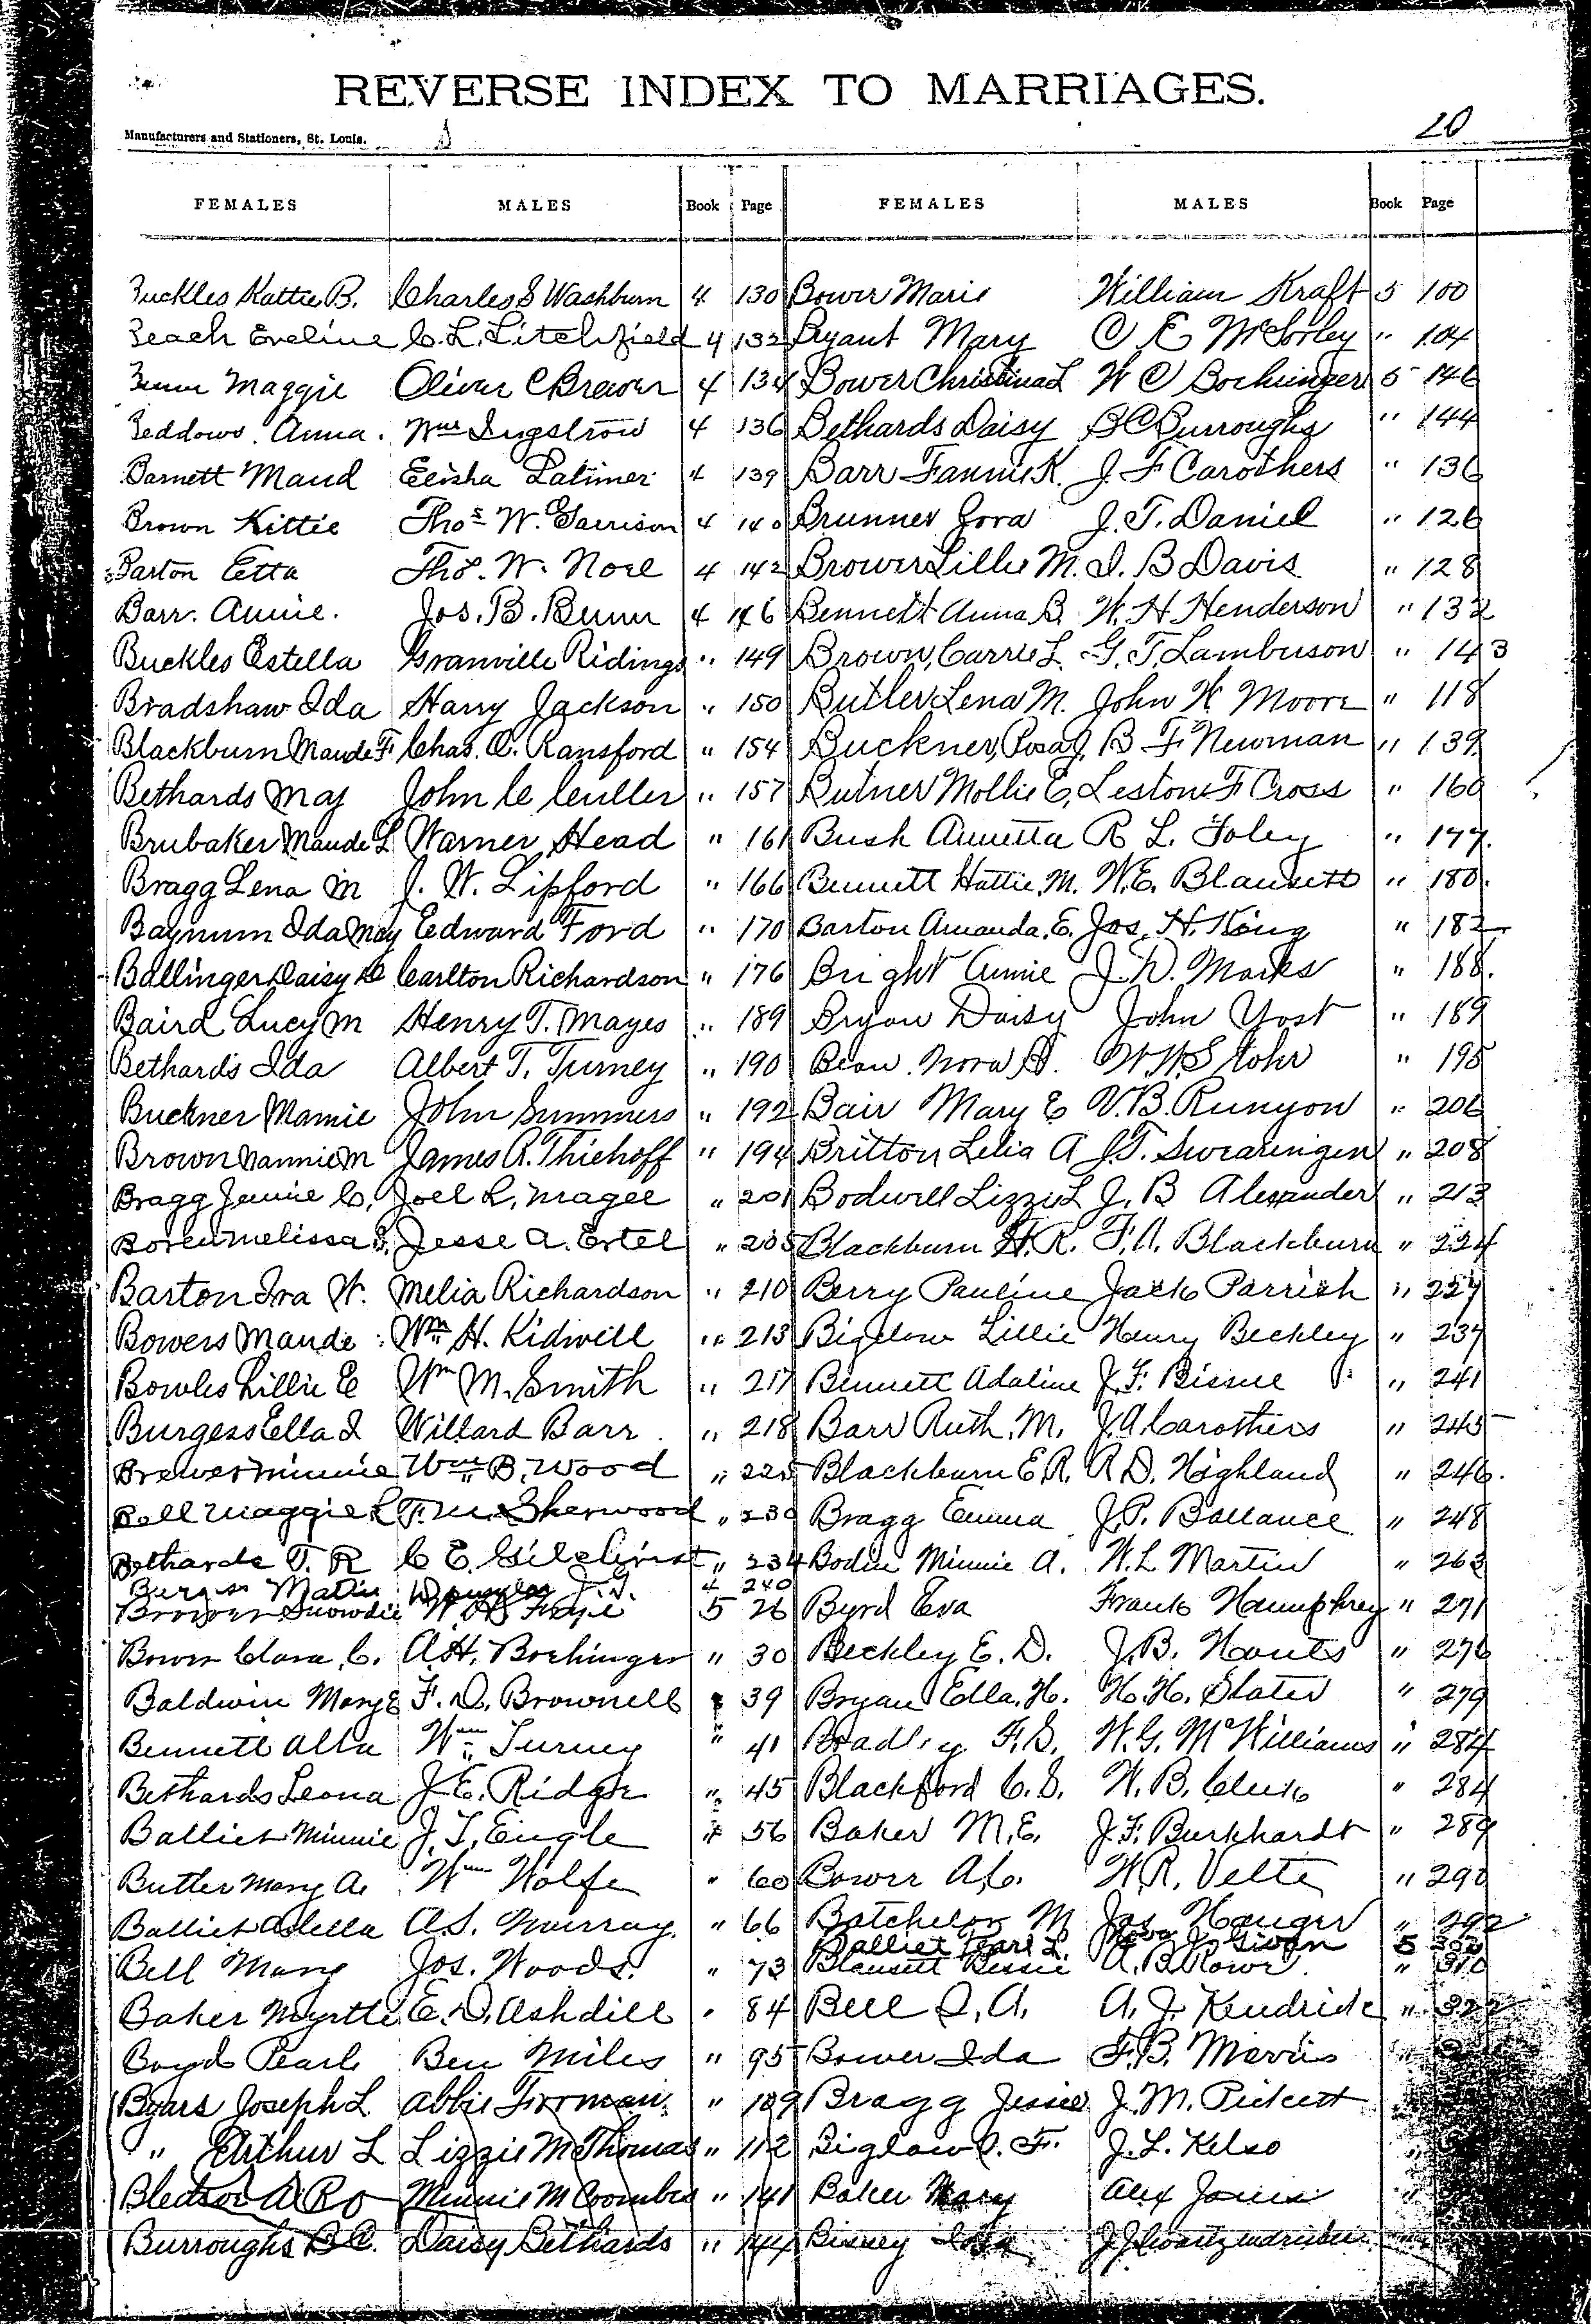 REVERSE INDEX TO MARRIAGES.
20
Manufacturers and Stationers, St. Louis.
FEMALES MALES Book Page FEMALES MALES Book Page
Buckles Kattie B. Charles S Washburn 4 130 Bower Marie William Kraft 5 100
Beach Eveline C. L. Litchfield 4 132 Bryant Mary C E McSorley " 104
Maggie Oliver C Brewer 4 134 Bower Christina L W C Boehringer 5 146
Beddows Anna. Wm Ingstrow 4 136 Bethards Daisy B C Burroughs " 144
Barnett Maud Elisha Latimer 4 139 Barr Fannie K. J F Carothers " 136
Brown Kittie Thos W. Garrison 4 140 Brunner Zora J. T. Daniel " 126
Barton Etta Tho. W. Noel 4 142 Brower Lillie M. I. B Davis " 128
Barr. Annie. Jos. B. Bunn 4 146 Bennett Anna B. W. H Henderson " 132
Buckles Estella Granville Ridings " 149 Brown, Carrie L. G. T. Lamberson " 143
Bradshaw Ida Harry Jackson " 150 Butler Lena M. John W. Moore " 118
Blackburn Maude F. Chas. O. Ransford " 154 Buckner, Rosa J. B F Newman " 139
Bethards May John C Culler " 157 Butner Mollie E, Leston F Cross " 160
Brubaker Maude L Warner Head " 161 Bush Annetta R L. Foley " 177.
Bragg Lena M J. W. Lipford " 166 Bennett Hattie M. W. E. Blansett " 180.
Baynum Ida May Edward Ford " 170 Barton Amanda. E. Jos. H. King " 182
Ballinger Daisy Carlton Richardson " 176 Bright Annie J. D. Marks " 188.
Baird Lucy M Henry T. Mayes " 189 Bryan Daisy John Yost " 189
Bethards Ida Albert T. Turney " 190 Bean Nora A. W. W. Stohr " 195
Buckner Mamie John Summers " 192 Bair Mary E V. B. Runyon " 206
Brown Nannie M James R. Thiehoff " 194 Britton Lelia A J. T. Swearingen " 208
Bragg Jennie C. Joel L. Magee " 201 Bodwell Lizzie L J. B Alexander " 213
Boren Melissa Jesse A. Ertel " 205 Blackburn H. R. F. A. Blackburn " 224
Barton Ira W. Melia Richardson " 210 Berry Pauline Jack Parrish " 227
Bowers Maude Wm H. Kidwell " 213 Bigelow Lillie Henry Beckley " 237
Bowles Lillie E Wm M. Smith " 217 Bennett Adaline J. F. Bissue " 241
Burgess Ella J Willard Barr " 218 Barr Ruth. M. J. A. Carothers " 245
Brewer Minnie Wm B. Wood " 225 Blackburn E. R. R. D. Highland " 246.
Ball Maggie L T. M. Sherwood " 230 Bragg Emma J. P. Ballance " 248
Bethards T. R C E. Gilchrist " 234 Bodin Minnie A. W. L Martin " 263
Burgess Mattie Douglas J. G. 4 240
Brower Snowdie 5 26 Byrd Eva Frank Humphrey " 271
Bower Clara C. A. H. Boehinger " 30 Beckley E. D. J. B. Houts " 276
Baldwin Mary E F. D. Brownell " 39 Bryan Ella. H. H. H. Slater " 279
Bennett Alta Wm Turney " 41 Bradley F. S. W. G. McWilliams " 284
Bethards Leona J. E. Ridge " 45 Blackford C. S. W. B. Cluk " 284
Balliet Minnie J. T. Engle " 56 Baker M. E. J. F. Burkhardt " 289
Butler Mary A. Wm Wolfe " 60 Bower A. C. W. R. Velte " 290
Balliet Adella A. S. Murray. " 66 Batchelor M Jas Hauger " 292
Balliet Pearl L. Givan 5
Bell Mary Jos. Woods. " 73 Blansett Bessie A. B. Rowe " 310
Baker Myrtle E. D. Ashdill " 84 Bell I. A. A. J. Kendrick " 322
Boyd Pearl Ben Miles " 95 Bower Ida F. B. Marvis "
Byars Joseph L Abbie Forman " 109 Bragg Jessie J. M. Pickett
" Arthur L Lizzie M Thomas " 112 Biglow C. F. J. L. Kelso
Bledsoe A R Minnie M Coombes " 141 Baker Mary Alex Jones
Burroughs B C. Daisy Bethards " 144 Bisney